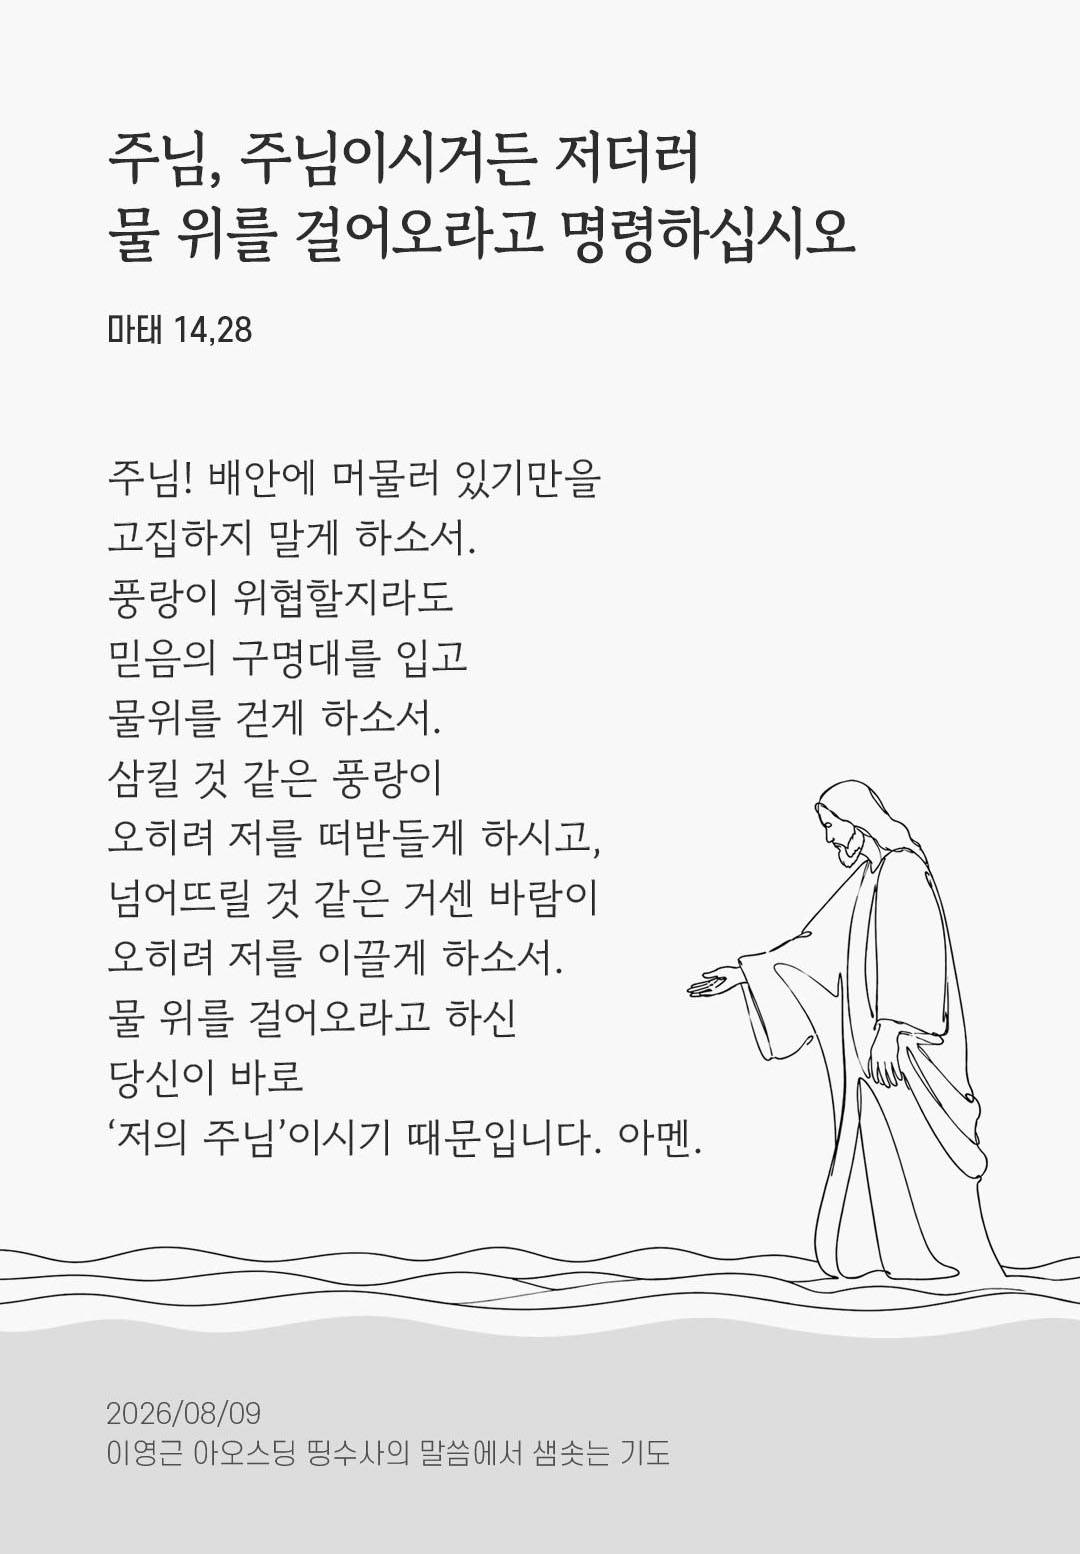 주님, 주님이시거든 저더러
물 위를 걸어오라고 명령하십시오
마태 14,28
주님! 배안에 머물러 있기만을
고집하지 말게 하소서.
풍랑이 위협할지라도
믿음의 구명대를 입고
물위를 걷게 하소서.
삼킬 것 같은 풍랑이
오히려 저를 떠받들게 하시고,
넘어뜨릴 것 같은 거센 바람이
오히려 저를 이끌게 하소서.
물 위를 걸어오라고 하신
당신이 바로
‘저의 주님’이시기 때문입니다. 아멘.
2026/08/09
이영근 아오스딩 띵수사의 말씀에서 샘솟는 기도